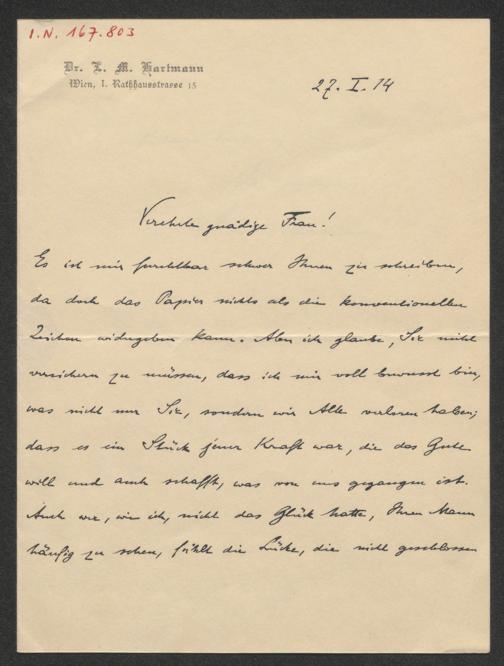 I.N. 167.803
Dr. L. M. Hartmann
Wien, I. Rathhausstrasse 15
27. I. 14
Verehrte gnädige Frau!
Es ist mir furchtbar schwer Ihnen zu schreiben,
da doch das Papier nichts als die konventionellen
Zeichen widergeben kann. Aber ich glaube, Sie nicht
versichern zu müssen, dass ich mir voll bewusst bin,
was nicht nur Sie, sondern wir Alle verloren haben;
dass es ein Stück jener Kraft war, die das Gute
will und auch schafft, was von uns gegangen ist.
Auch wer, wie ich, nicht das Glück hatte, Ihren Mann
häufig zu sehen, fühlt die Lücke, die nicht geschlossen